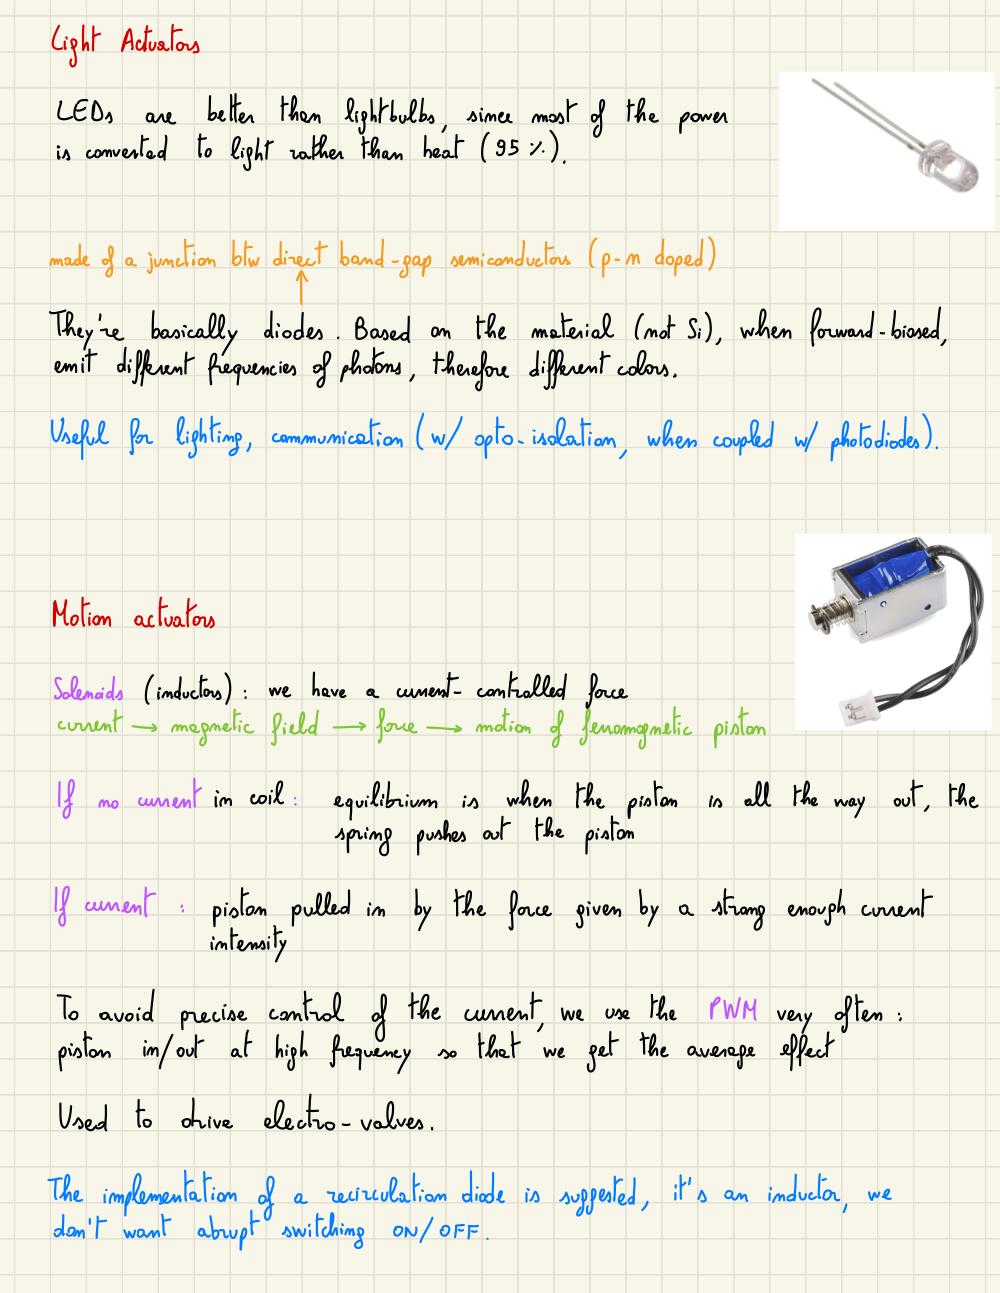 Light Actuators
LEDs are better than lightbulbs, since most of the power
is converted to light rather than heat (95 %).
made of a junction btw direct band-gap semiconductors (p-n doped)
They're basically diodes. Based on the material (not Si), when forward-biased,
emit different frequencies of photons, therefore different colors.
Useful for lighting, communication (w/ opto-isolation, when coupled w/ photodiodes).
Motion actuators
Solenoids (inductors): we have a current-controlled force
current → magnetic field → force → motion of ferromagnetic piston
If no current in coil: equilibrium is when the piston is all the way out, the
spring pushes out the piston
If current: piston pulled in by the force given by a strong enough current
intensity
To avoid precise control of the current, we use the PWM very often:
piston in/out at high frequency so that we get the average effect
Used to drive electro-valves.
The implementation of a recirculation diode is suggested, it's an inductor, we
don't want abrupt switching ON/OFF.